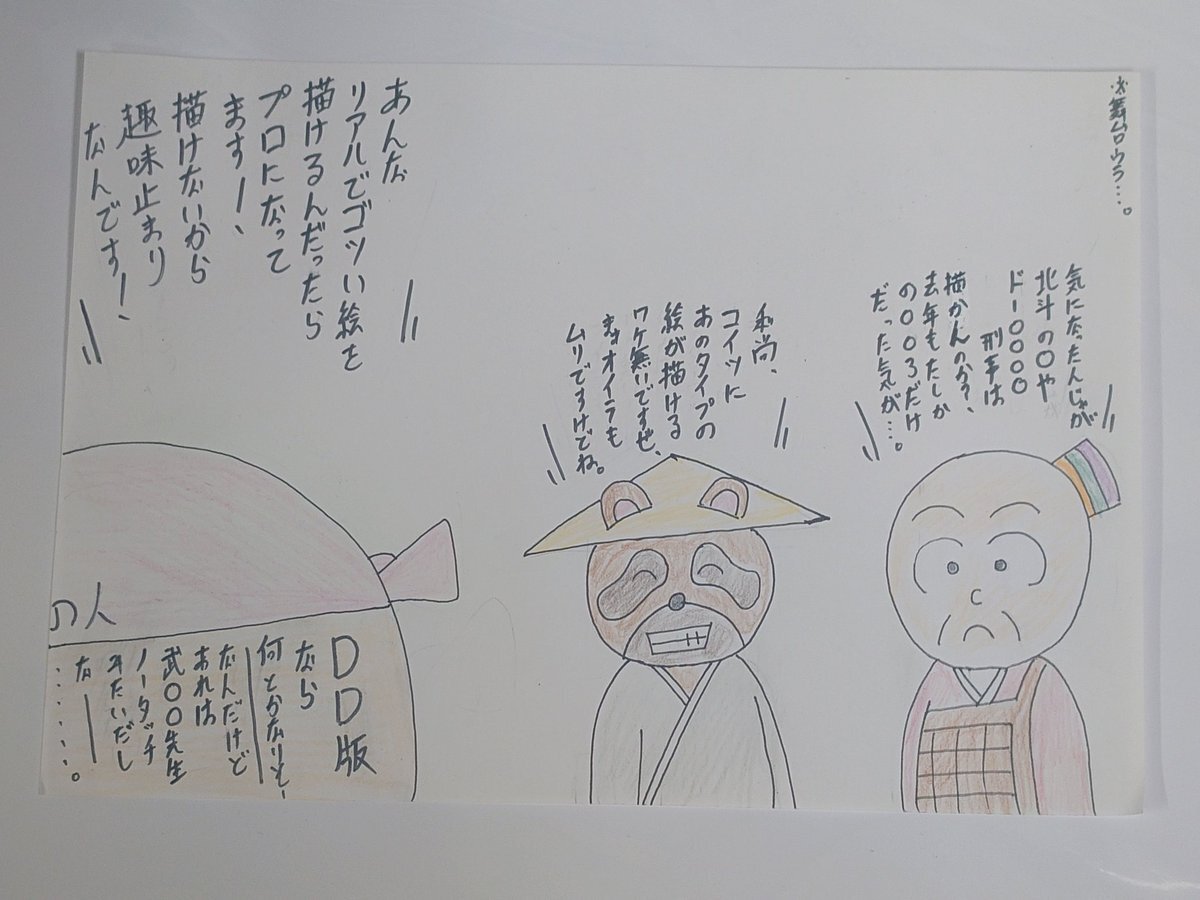 ※舞台ウラ…。
気になったんじゃが
北斗の〇や
ドー〇〇〇〇
刑事は
描かんのか?、
去年もたしか
の〇〇ろだけ
だった気が…。
和尚、
コイツに
あのタイプの
絵が描ける
ワケ無いですぜ、
まぁオイラも
ムリですけどね。
あんな
リアルでゴツい絵を
描けるんだったら
プロになって
ます!、
描けないから
趣味止まり
なんです!
の人
DD版
なら
何とかなりそー
なんだけど
あれは
武〇〇先生
ノータッチ
みたいだし
なー
……。